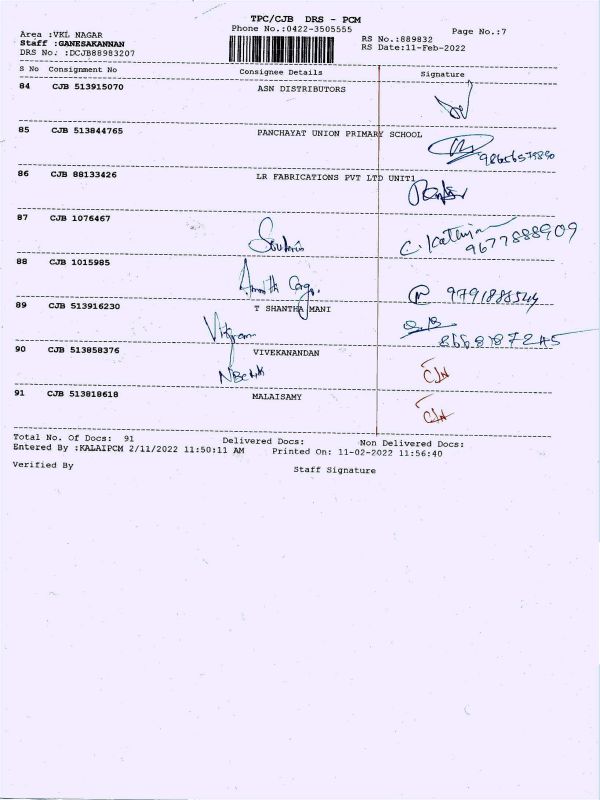 TPC/CJB DRS - PCM
Area :VKL NAGAR Phone No.:0422-3505555 Page No.:7
Staff :GANESAKANNAN RS No.:889832
DRS No. :DCJB88983207 RS Date:11-Feb-2022
S No Consignment No Consignee Details Signature
84 CJB 513915070 ASN DISTRIBUTORS
85 CJB 513844765 PANCHAYAT UNION PRIMARY SCHOOL
86 CJB 88133426 LR FABRICATIONS PVT LTD UNIT1
87 CJB 1076467
9677888909
88 CJB 1015985
9791888544
89 CJB 513916230 T SHANTHA MANI
Vikram
8668187245
90 CJB 513858376 VIVEKANANDAN
91 CJB 513818618 MALAISAMY
Total No. Of Docs: 91 Delivered Docs: Non Delivered Docs:
Entered By :KALAIPCM 2/11/2022 11:50:11 AM Printed On: 11-02-2022 11:56:40
Verified By Staff Signature